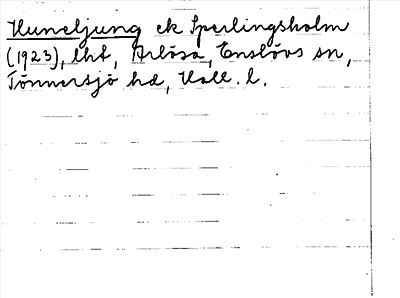 Huneljung ek Sperlingsholm
(1923), lht, Arlösa, Enslövs sn,
Tönnersjö hd, Hall. l.